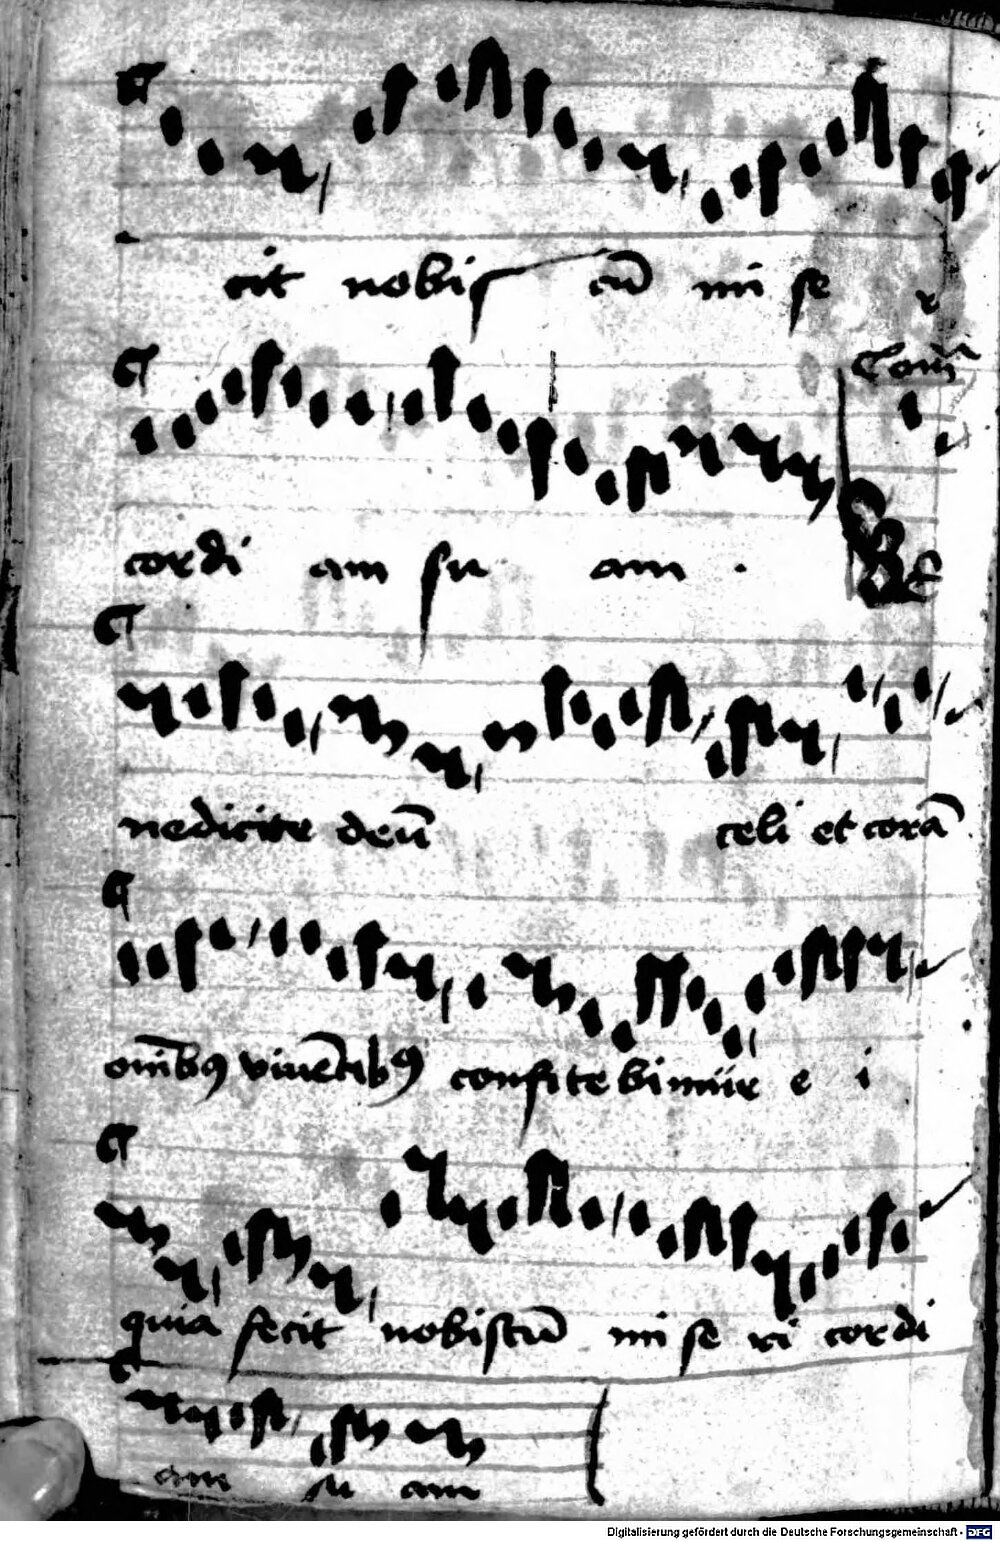 cit nobis cū mi se r
Com̄
cordi am su am . Be
nedicite deū celi et corā
om̄ibꝯ viuētibꝯ confitebimur e i
quia fecit nobiscū mi se ri cordi
am su am
Digitalisierung gefördert durch die Deutsche Forschungsgemeinschaft - DFG